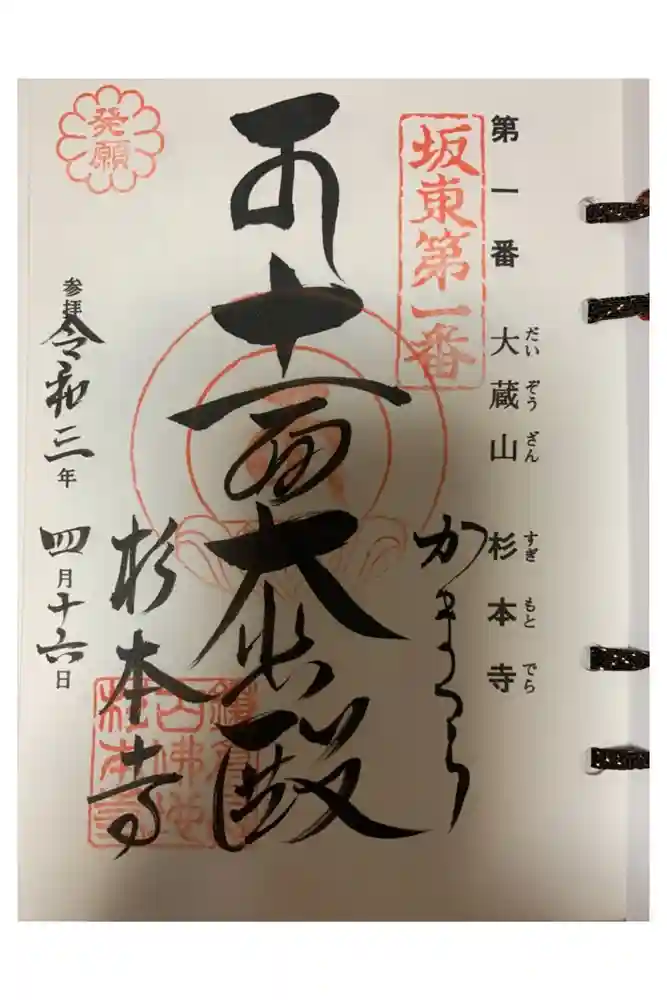 第一番 大蔵山 杉本寺
だいぞうざん すぎもとでら
坂東第一番
かまくら
十一面大悲殿
発願
杉本寺
参拝 令和三年 四月十六日